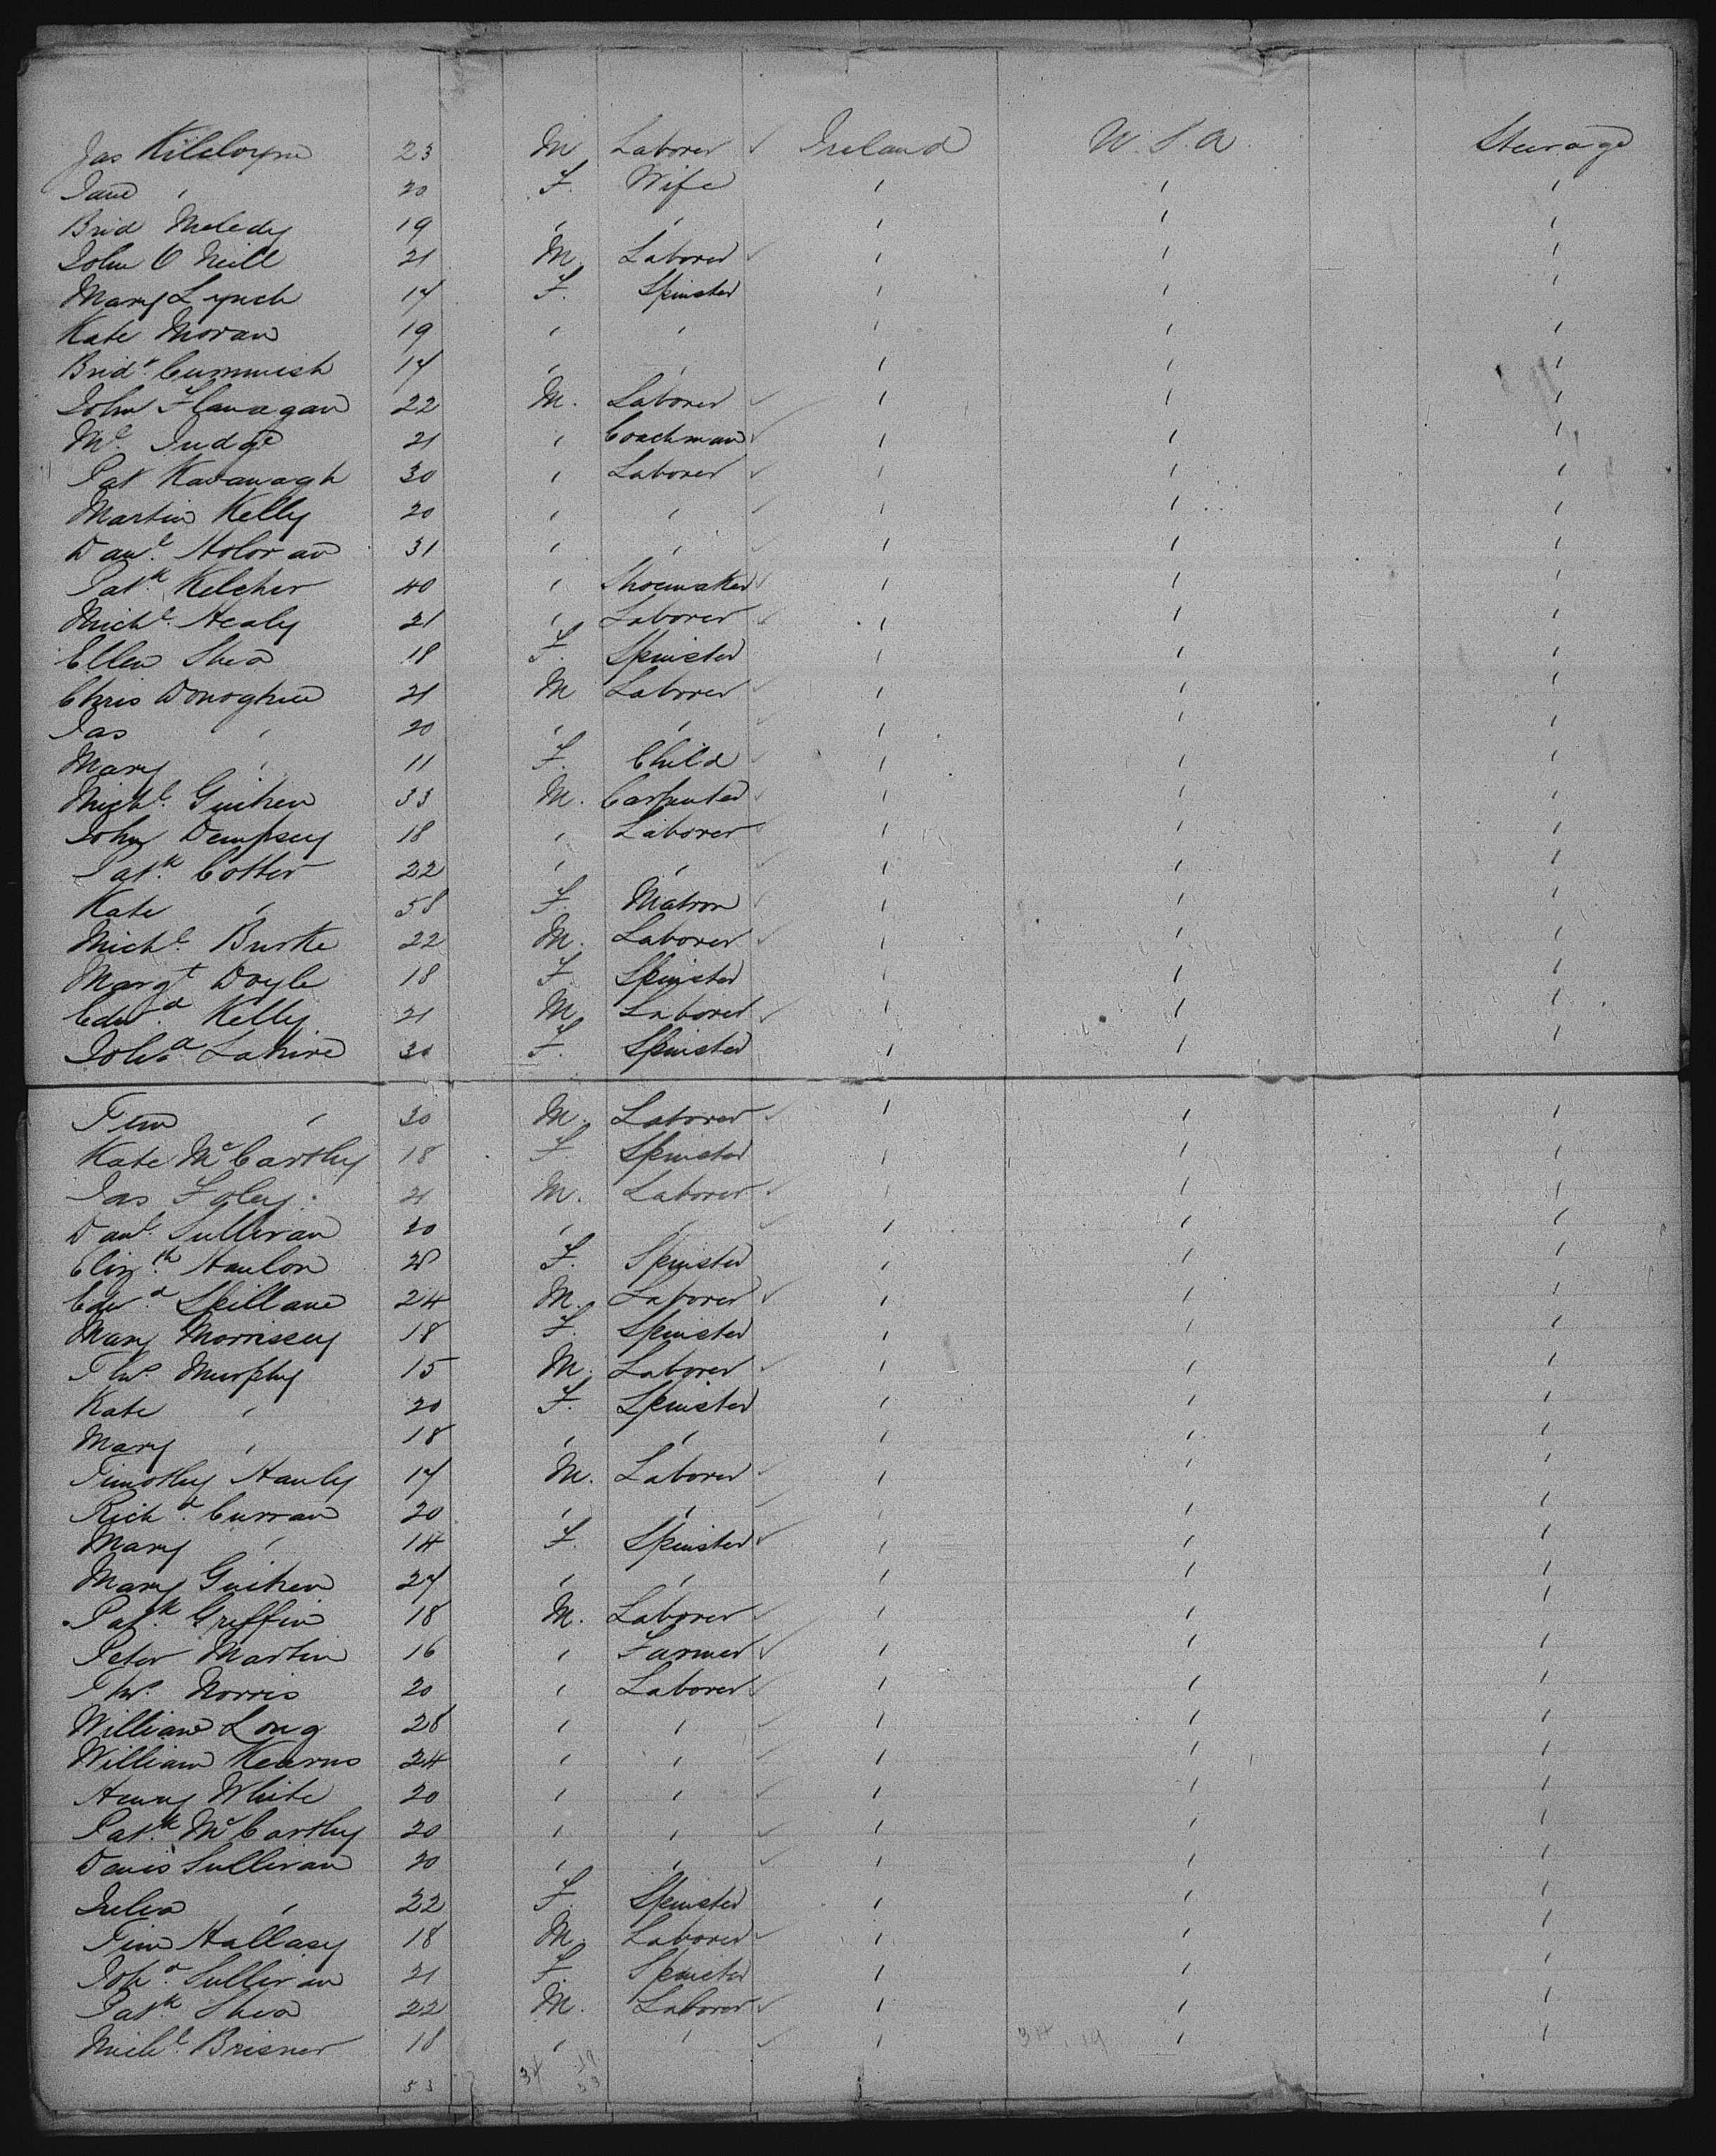 Jas Kilcloyne 23 M Laborer ✓ Ireland U.S.A. Steerage
Jane " 20 F. Wife " " "
Brid Meledy 19 " " " " "
John O Neill 21 M. Laborer ✓ " " "
Mary Lynch 17 F. Spinster " " "
Kate Moran 19 " " " " "
Bridt. Cummish 17 " " " " "
John Flanagan 22 M. Laborer ✓ " " "
Ml. Judge 21 " Coachman ✓ " " "
Pat Kavanagh 30 " Laborer ✓ " " "
Martin Kelly 20 " " ✓ " " "
Danl. Holoran 31 " " ✓ " " "
Patk. Kelcher 40 " Shoemaker ✓ " " "
Michl. Healy 21 " Laborer ✓ " " "
Ellen Shea 18 F. Spinster " " "
Chris Donoghue 21 M Laborer ✓ " " "
Jas " 20 " " ✓ " " "
Mary " 11 F. Child ✓ " " "
Michl. Guihen 33 M. Carpenter ✓ " " "
John Dempsey 18 " Laborer ✓ " " "
Patk. Cotter 22 " " ✓ " " "
Kate " 58 F. Matron ✓ " " "
Michl. Burke 22 M. Laborer ✓ " " "
Margt Doyle 18 F. Spinster " " "
Edwd. Kelly 21 M. Laborer ✓ " " "
Joha. Lahive 30 F. Spinster " " "
Tim " 30 M. Laborer ✓ " " "
Kate McCarthy 18 F Spinster " " "
Jas Foley 21 M. Laborer ✓ " " "
Danl. Sullivan 20 " " ✓ " " "
Elizth. Hanlon 28 F. Spinster " " "
Edwd. Spillane 24 M. Laborer ✓ " " "
Mary Morrissey 18 F. Spinster " " "
Ths. Murphy 15 M. Laborer ✓ " " "
Kate " 20 F. Spinster " " "
Mary " 18 " " " " "
Timothy Hanly 17 M. Laborer ✓ " " "
Richd. Curran 20 " " ✓ " " "
Mary " 14 F. Spinster ✓ " " "
Mary Guihen 27 " " " " "
Patk. Griffin 18 M. Laborer ✓ " " "
Peter Martin 16 " Farmer ✓ " " "
Ths. Norris 20 " Laborer ✓ " " "
William Long 28 " " ✓ " " "
William Kearns 24 " " ✓ " " "
Henry White 20 " " ✓ " " "
Patk. McCarthy 20 " " ✓ " " "
Denis Sullivan 20 " " ✓ " " "
Julia " 22 F. Spinster " " "
Tim Hallasy 18 M. Laborer ✓ " " "
Joha. Sullivan 21 F. Spinster " " "
Patk Shea 22 M. Laborer ✓ " " "
Michl. Brisner 18 " " ✓ " 34, 19 " "
53 34 19
53